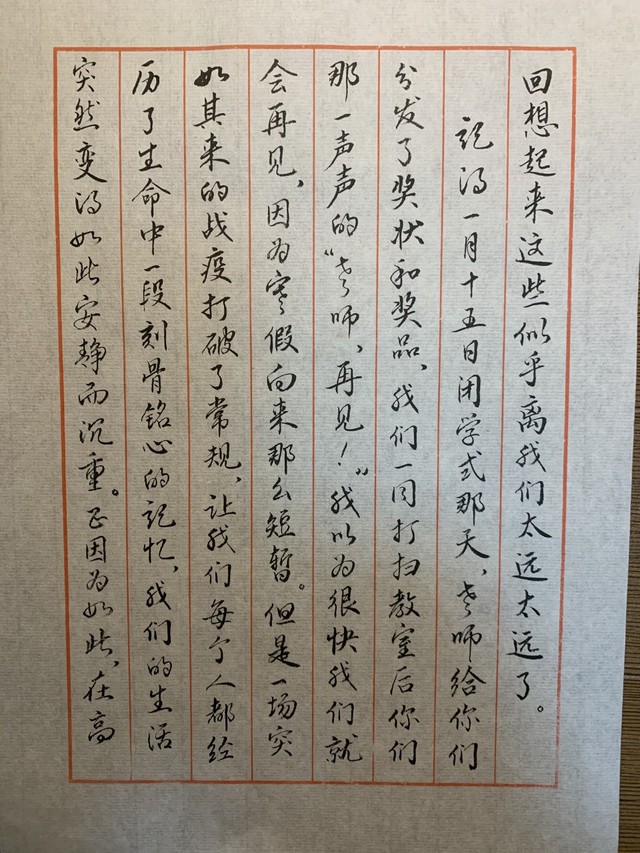 回想起来这些似乎离我们太远太远了。
记得一月十五日闭学式那天，老师给你们
分发了奖状和奖品，我们一同打扫教室后你们
那一声声的“老师，再见！”我以为很快我们就
会再见，因为寒假向来那么短暂。但是一场突
如其来的战疫打破了常规，让我们每个人都经
历了生命中一段刻骨铭心的记忆，我们的生活
突然变得如此安静而沉重。正因为如此，在高